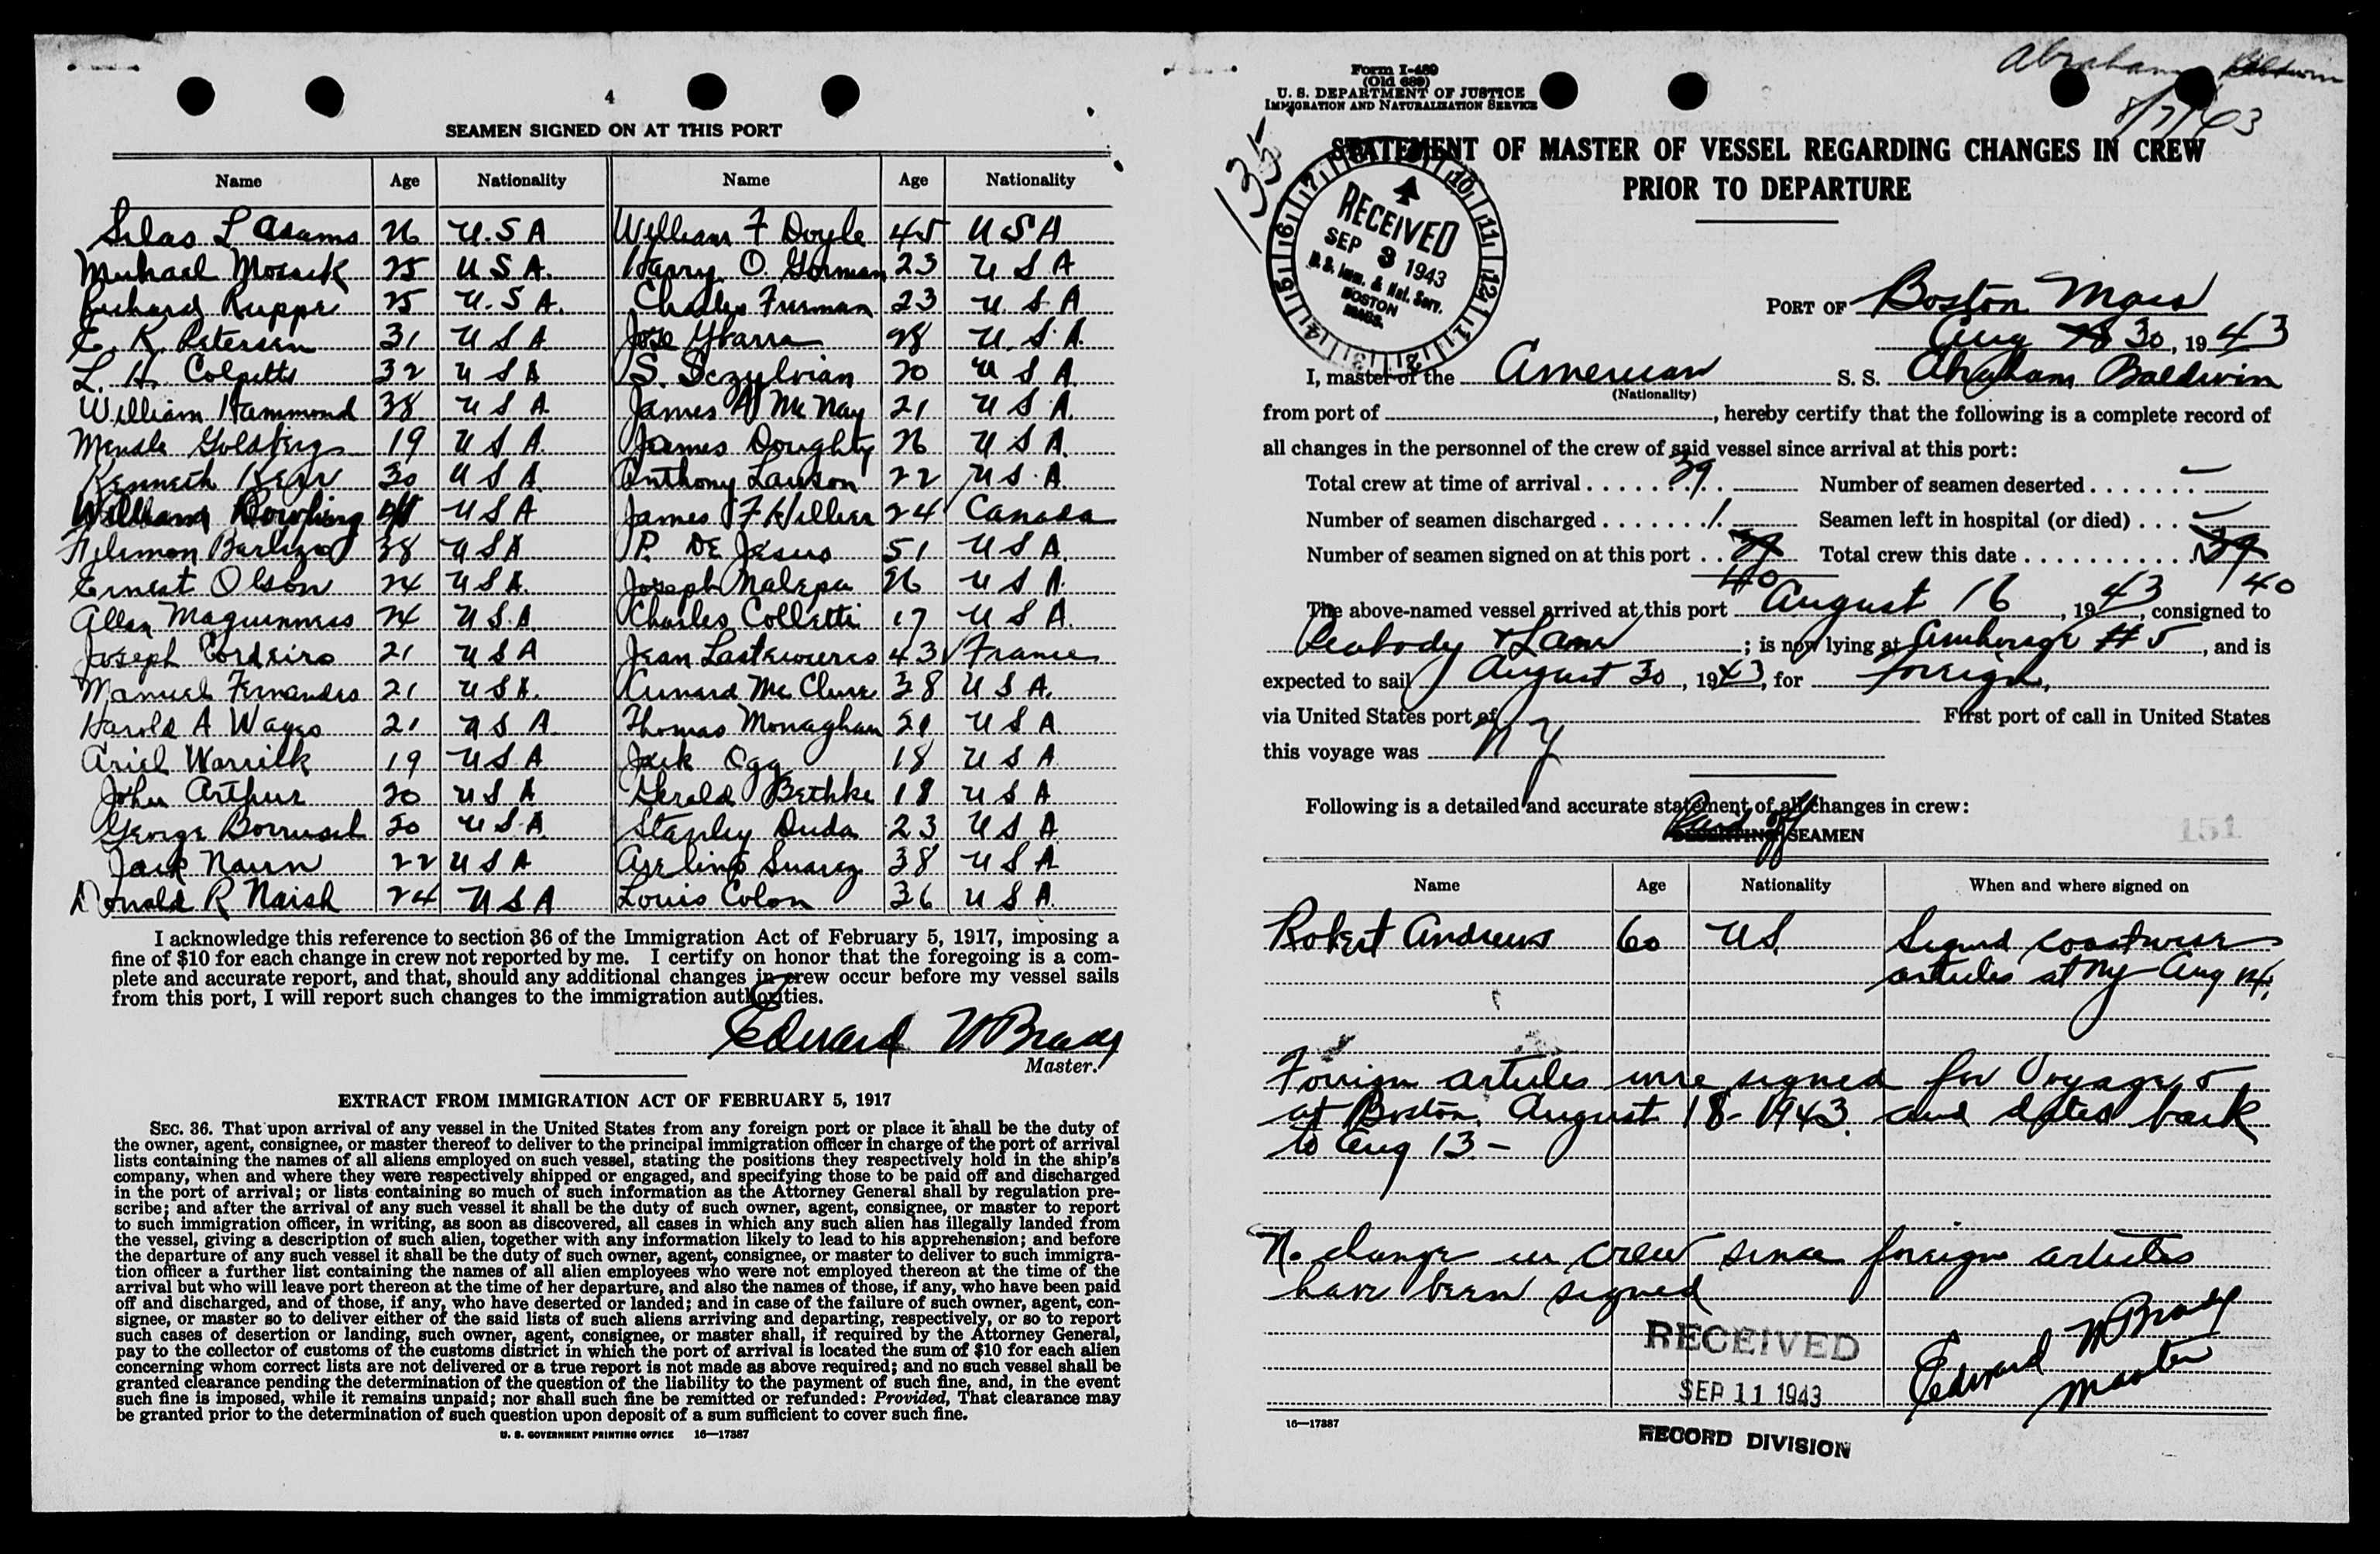 4
SEAMEN SIGNED ON AT THIS PORT
Name Age Nationality Name Age Nationality
Silas L Adams 26 U.S A William F Doyle 45 U S A
Michael 25 U S A. Harry O. Gorman 23 U S A
Richard Ruppe 25 U.S A. Charles Furman 23 U. S. A
E. R. Petersen 31 U S A Jose Ybarra 28 U. S. A.
L. H. Colpitts 32 U S A S. 20 U S A.
William Hammond 38 U S A. James McNay 21 U S A.
Mendle Goldberg 19 U S A. James Doughty 26 U S A.
Kenneth Kear 30 U S A. Anthony Lawson 22 U S. A.
William U S A James F Hillier 24 Canada
Filemon 38 U S A P. De Jesus 51 U S A.
Ernest Olson 24 U S A. Joseph Malepa 26 U S A.
Allen Maguinness 24 U S. A Charles Colletti 17 U S A.
Joseph Cordeiro 21 U S A Jean 43 France
Manuel Fernandes 21 U S A. McClure 38 U S A.
Harold A Wages 21 U S A. Thomas Monaghan U S A
Ariel Warrilk 19 U S A Jack Ogg 18 U S A
John Arthur 20 U S A Gerald Bethke 18 U S A
George 20 U S. A. Stanley Duda 23 U S A
Jack Nairn 22 U S A Suarez 38 U S A
Donald R Naish 24 U S A Louis Colon 36 U S A.
I acknowledge this reference to section 36 of the Immigration Act of February 5, 1917, imposing a
fine of $10 for each change in crew not reported by me. I certify on honor that the foregoing is a com-
plete and accurate report, and that, should any additional changes in crew occur before my vessel sails
from this port, I will report such changes to the immigration authorities.
Edward W Brady
Master.
EXTRACT FROM IMMIGRATION ACT OF FEBRUARY 5, 1917
SEC. 36. That upon arrival of any vessel in the United States from any foreign port or place it shall be the duty of
the owner, agent, consignee, or master thereof to deliver to the principal immigration officer in charge of the port of arrival
lists containing the names of all aliens employed on such vessel, stating the positions they respectively hold in the ship's
company, when and where they were respectively shipped or engaged, and specifying those to be paid off and discharged
in the port of arrival; or lists containing so much of such information as the Attorney General shall by regulation pre-
scribe; and after the arrival of any such vessel it shall be the duty of such owner, agent, consignee, or master to report
to such immigration officer, in writing, as soon as discovered, all cases in which any such alien has illegally landed from
the vessel, giving a description of such alien, together with any information likely to lead to his apprehension; and before
the departure of any such vessel it shall be the duty of such owner, agent, consignee, or master to deliver to such immigra-
tion officer a further list containing the names of all alien employees who were not employed thereon at the time of the
arrival but who will leave port thereon at the time of her departure, and also the names of those, if any, who have been paid
off and discharged, and of those, if any, who have deserted or landed; and in case of the failure of such owner, agent, con-
signee, or master so to deliver either of the said lists of such aliens arriving and departing, respectively, or so to report
such cases of desertion or landing, such owner, agent, consignee, or master shall, if required by the Attorney General,
pay to the collector of customs of the customs district in which the port of arrival is located the sum of $10 for each alien
concerning whom correct lists are not delivered or a true report is not made as above required; and no such vessel shall be
granted clearance pending the determination of the question of the liability to the payment of such fine, and, in the event
such fine is imposed, while it remains unpaid; nor shall such fine be remitted or refunded: Provided, That clearance may
be granted prior to the determination of such question upon deposit of a sum sufficient to cover such fine.
U. S. GOVERNMENT PRINTING OFFICE 16—17387
Abraham Baldwin
Form I-489
(Old 689)
U. S. DEPARTMENT OF JUSTICE
IMMIGRATION AND NATURALIZATION SERVICE
135
STATEMENT OF MASTER OF VESSEL REGARDING CHANGES IN CREW
PRIOR TO DEPARTURE
RECEIVED
SEP 3 1943
U. S. Imm. & Nat. Serv.
BOSTON
MASS.
PORT OF Boston Mass
Aug 30, 1943
I, master of the American S. S. Abraham Baldwin
(Nationality)
from port of , hereby certify that the following is a complete record of
all changes in the personnel of the crew of said vessel since arrival at this port:
Total crew at time of arrival 39 Number of seamen deserted –
Number of seamen discharged 1. Seamen left in hospital (or died) –
Number of seamen signed on at this port 39 Total crew this date 39
40 40
The above-named vessel arrived at this port August 16, 1943, consigned to
Peabody & Lane; is now lying at Anchorage #5, and is
expected to sail August 30, 1943, for foreign,
via United States port of First port of call in United States
this voyage was N Y
Following is a detailed and accurate statement of all changes in crew:
Paid off
DESERTING SEAMEN
151
Name Age Nationality When and where signed on
Robert Andrews 60 US Signed coastwise
articles at NY Aug 14,
Foreign articles were signed for Voyage 5
at Boston. August 18 1943. and dated back
to Aug 13 –
No change in crew since foreign articles
have been signed
Edward W Brady
Master
RECEIVED
SEP 11 1943
RECORD DIVISION
16—17387